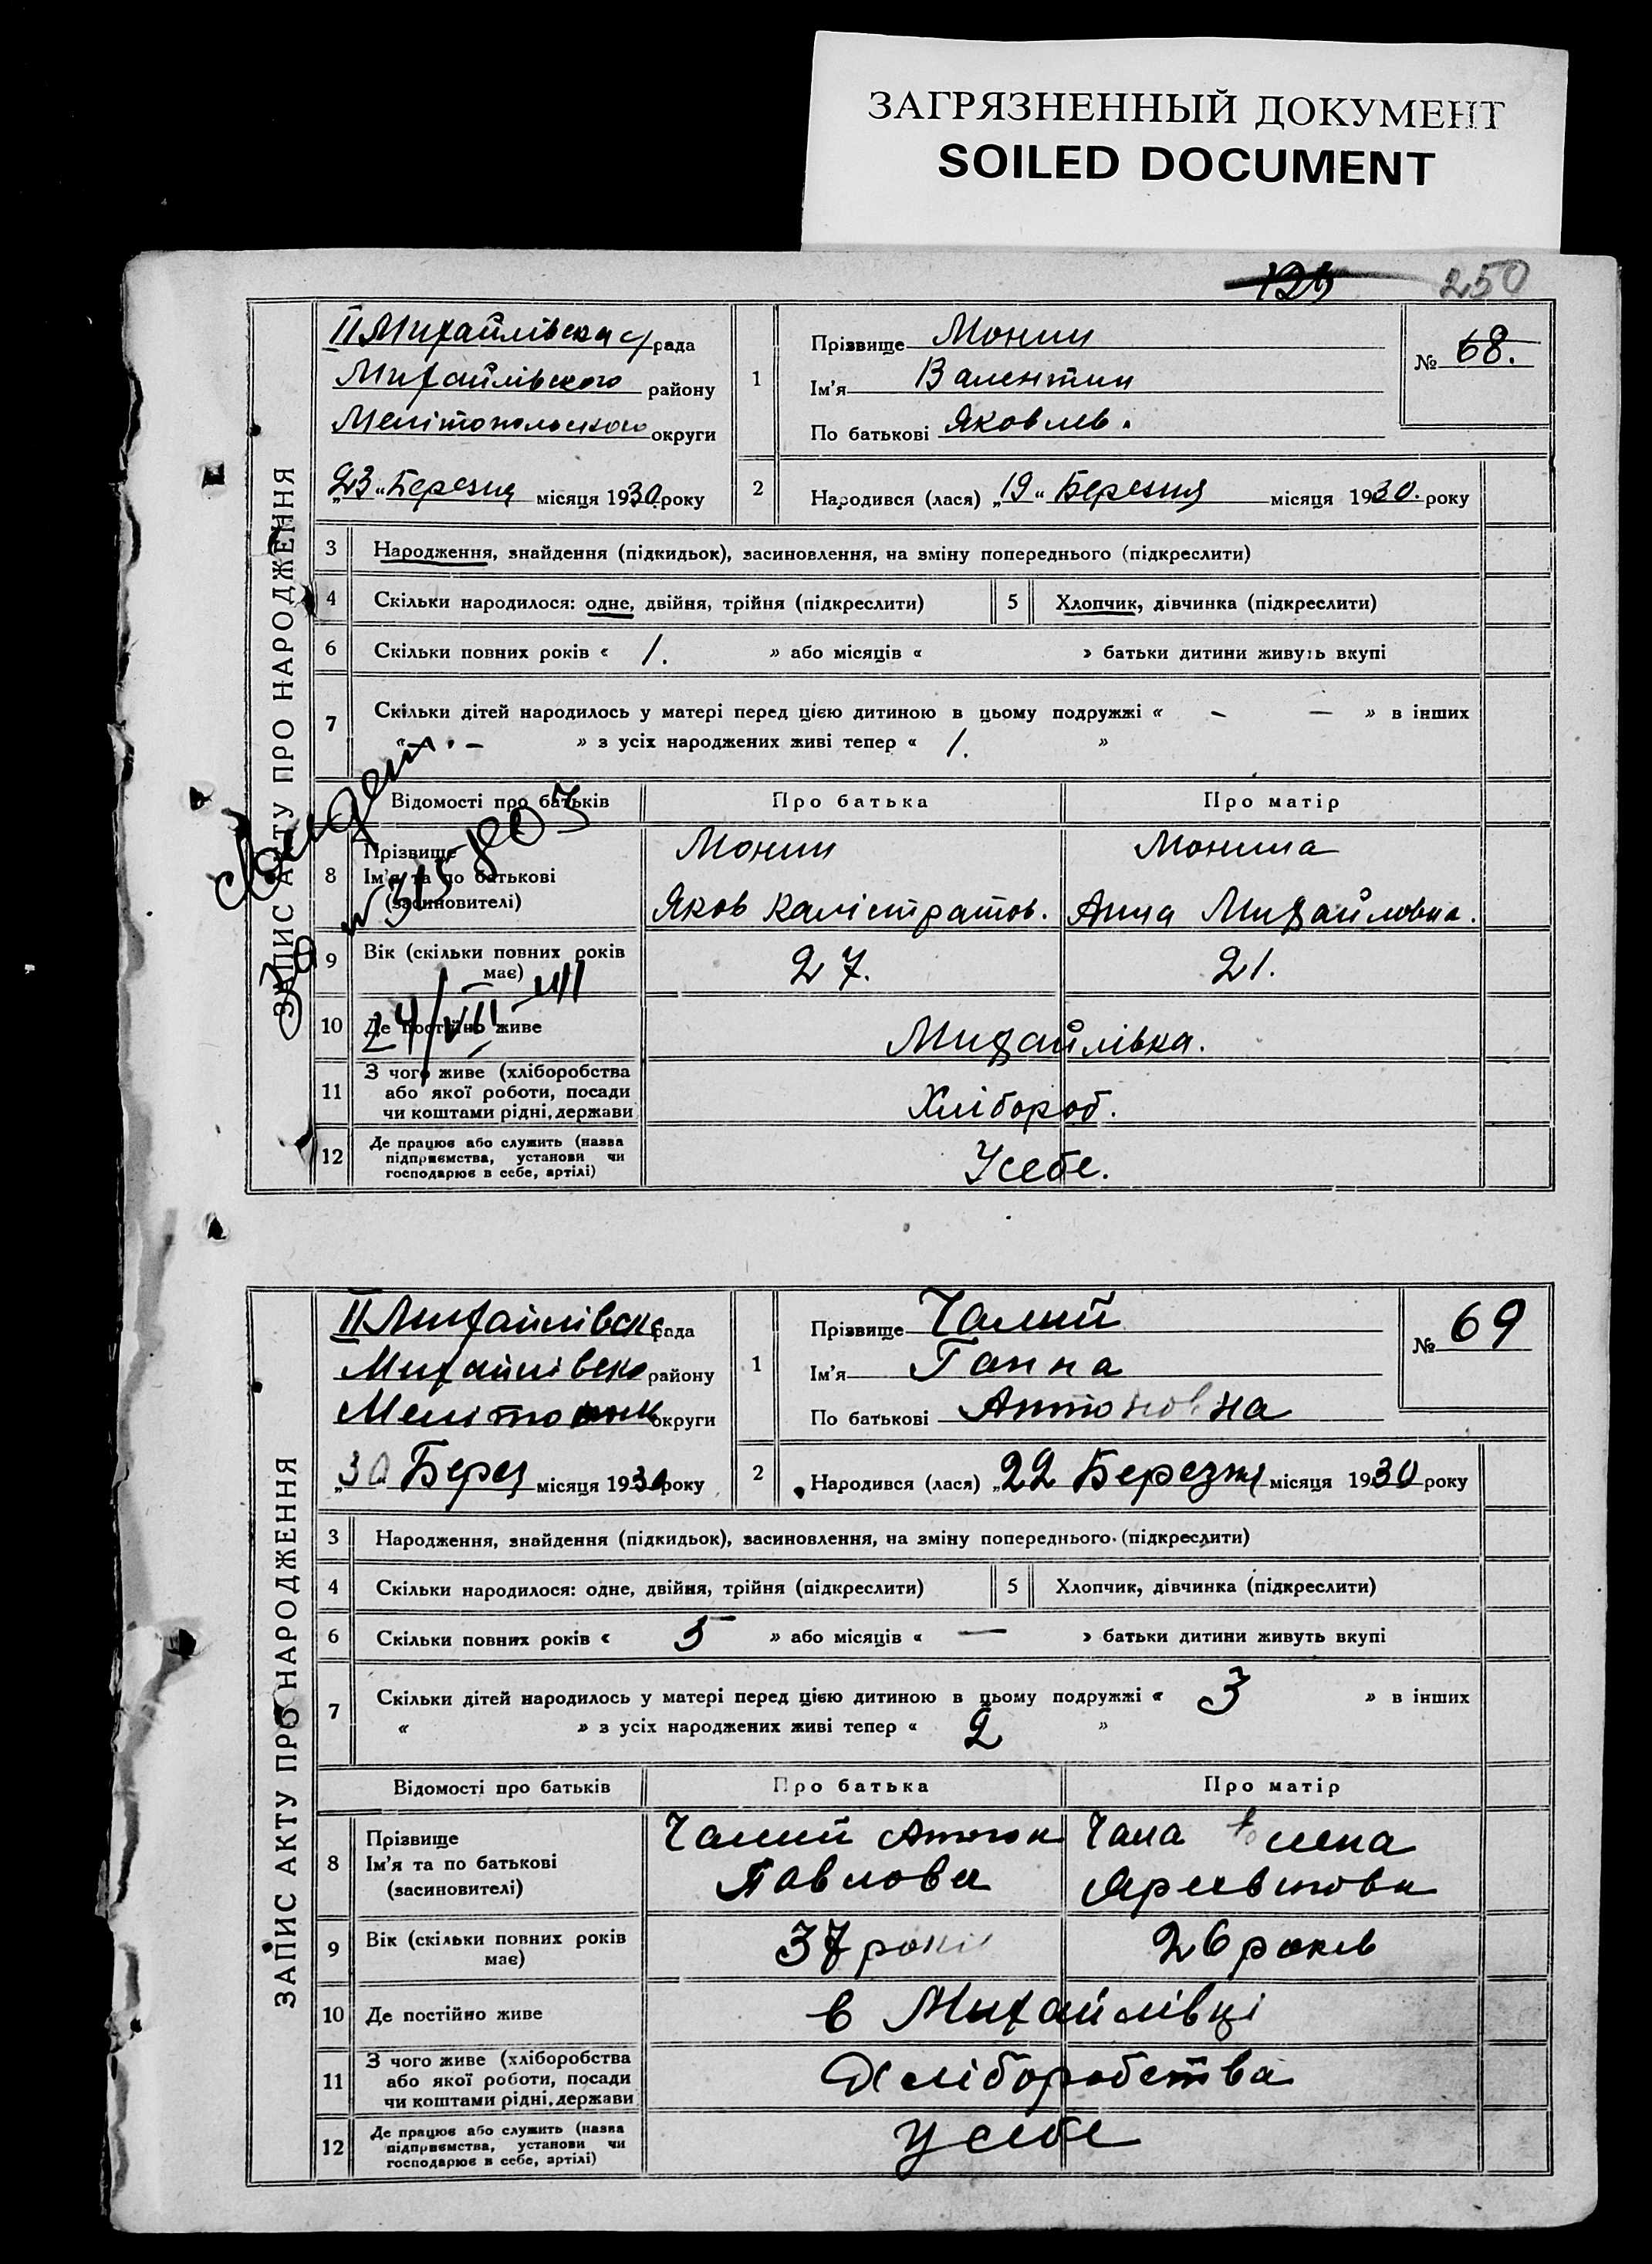 ЗАГРЯЗНЕННЫЙ ДОКУМЕНТ
SOILED DOCUMENT
250
ЗАПИС АКТУ ПРО НАРОДЖЕННЯ
II Михайлівська с/рада
Михайлівського району
Мелітопольского округи
„23“ Березня місяця 1930 року
1
Прізвище Монин
Ім'я Валентин
По батькові Яковлев.
№ 68.
2
Народився (лася) „19“ Березня місяця 1930. року
3 Народження, знайдення (підкидьок), засиновлення, на зміну попереднього (підкреслити)
4 Скільки народилося: одне, двійня, трійня (підкреслити) 5 Хлопчик, дівчинка (підкреслити)
6 Скільки повних років « 1. » або місяців « » батьки дитини живуть вкупі
7 Скільки дітей народилось у матері перед цією дитиною в цьому подружжі « - — » в інших
« - » з усіх народжених живі тепер « 1. »
Відомості про батьків Про батька Про матір
8 Прізвище Монин Монина
Ім'я та по батькові Яков Калістратов. Анна Михайловна.
(засиновителі)
9 Вік (скільки повних років має) 27. 21.
10 Де постійно живе Михайлівка.
11 З чого живе (хліборобства або якої роботи, посади чи коштами рідні, держави Хлібороб.
12 Де працює або служить (назва підприємства, установи чи господарює в себе, артілі) Усебе.
24/VIII
ЗАПИС АКТУ ПРО НАРОДЖЕННЯ
II Михайлівська рада
Михайлівско району
округи
„30 Берез місяця 1930 року
1
Прізвище Чалий
Ім'я Ганна
По батькові Антоновна
№ 69
2
Народився (лася) „22 Березня місяця 1930 року
3 Народження, знайдення (підкидьок), засиновлення, на зміну попереднього (підкреслити)
4 Скільки народилося: одне, двійня, трійня (підкреслити) 5 Хлопчик, дівчинка (підкреслити)
6 Скільки повних років « 5 » або місяців « — » батьки дитини живуть вкупі
7 Скільки дітей народилось у матері перед цією дитиною в цьому подружжі « 3 » в інших
« » з усіх народжених живі тепер « 2 »
Відомості про батьків Про батька Про матір
8 Прізвище Чалий Антон Чала
Ім'я та по батькові Павлови
(засиновителі)
9 Вік (скільки повних років має) 37 років 26 років
10 Де постійно живе в Михайлівці
11 З чого живе (хліборобства або якої роботи, посади чи коштами рідні, держави Хліборобства
12 Де працює або служить (назва підприємства, установи чи господарює в себе, артілі) у себе